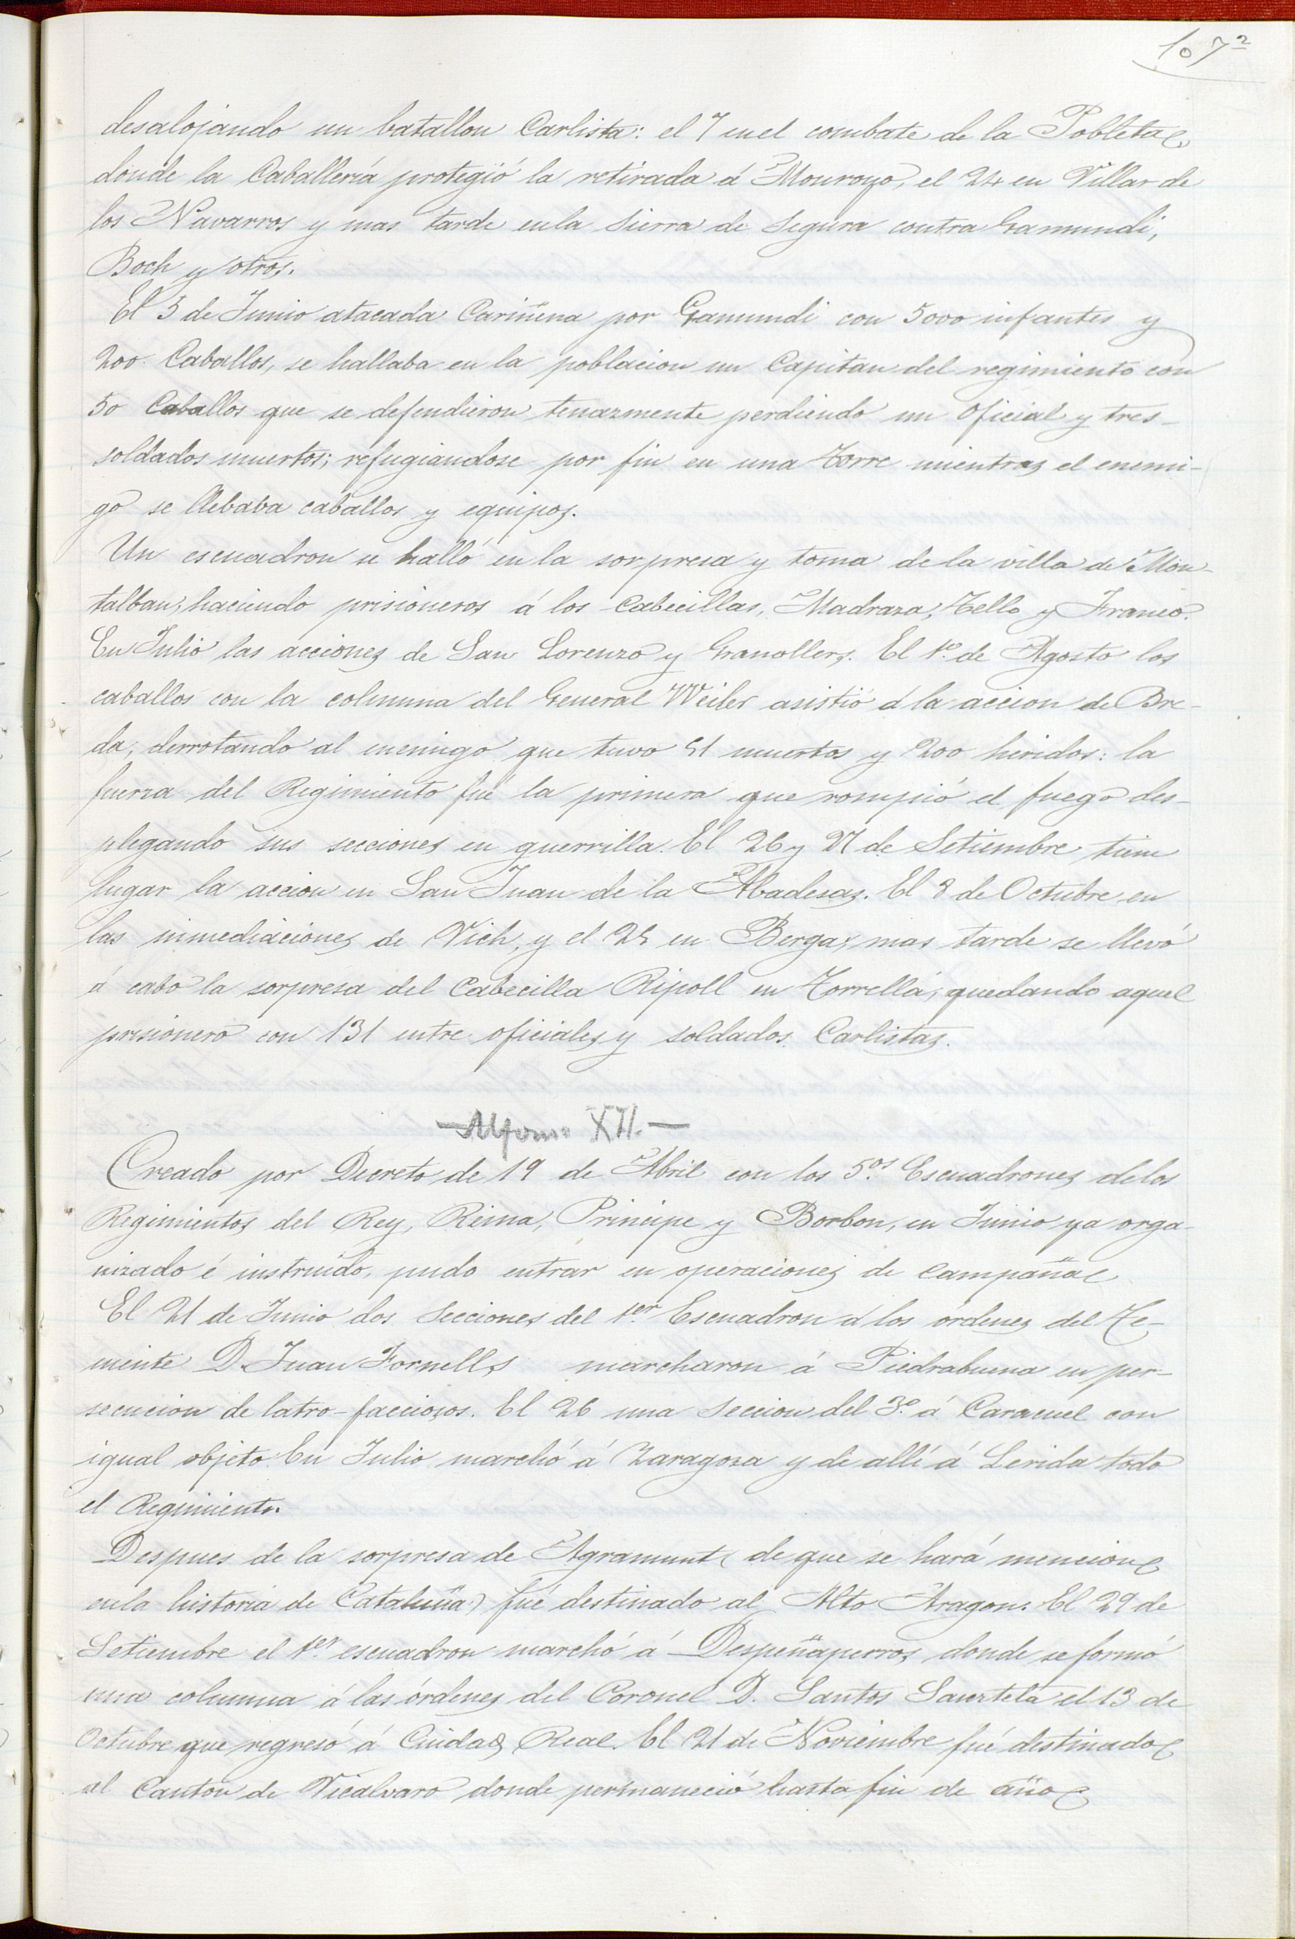 1072
desalojando un batallon Carlista: el 7 en el combate de la Pobleta,
donde la Caballería protegió la retirada á Monroyo, el 24 en Villar de
los Navarros y mas tarde en la Sierra de Segura contra Gamundi,
Boch y otros.
El 5 de Junio atacada Cariñena por Gamundi con 5000 infantes y
200 Caballos, se hallaba en la poblacion un Capitan del regimiento con
50 Caballos que se defendieron tenazmente perdiendo un Oficial y tres
soldados muertos; refugiandose por fin en una Torre mientras el enemi-
go se llebaba caballos y equipos.
Un escuadron se halló en la sorpresa y toma de la villa de Mon-
talban; haciendo prisioneros á los Cabecillas, Madraza, Tello y Franco.
En Julio las acciones de San Lorenzo y Granollers. El 1º de Agosto los
caballos con la columna del General Weiler asistió á la accion de Bre-
da, derrotando al enemigo que tuvo 51 muertos y 200 heridos: la
fuerza del Regimiento fué la primera que rompió el fuego des-
plegando sus secciones en guerrilla. El 26 y 27 de Setiembre tiene
lugar la accion en San Juan de la Abadesas. El 8 de Octubre en
las inmediaciones de Vich, y el 25 en Berga, mas tarde se llevó
á cabo la sorpresa del Cabecilla Ripoll en Torrellá, quedando aquel
prisionero con 131 entre oficiales y soldados Carlistas.
—Alfonso XII.—
Creado por Decreto de 19 de Abril con los 5os Escuadrones de los
Regimientos del Rey, Reina, Principe y Borbon, en Junio ya orga-
nizado é instruido, pudo entrar en operaciones de campaña
El 21 de Junio dos Secciones del 1er Escuadron á los órdenes del Te-
niente D. Juan Fornells marcharon á Piedrabuena en per-
secucion de latro-facciosos. El 26 una Seccion del 3º á Caracuel con
igual objeto. En Julio marchó á Zaragoza y de allí á Lerida todo
el Regimiento.
Despues de la sorpresa de Agramunt (de que se hará mencion
en la historia de Cataluña) fué destinado al Alto Aragon. El 29 de
Setiembre el 1er escuadron marchó á Despeñaperros, donde se formó
una columna á las órdenes del Coronel D. Santos el 13 de
Octubre que regresó á Ciudad Real. El 21 de Noviembre fué destinado
al Canton de Vicalvaro donde permaneció hasta fin de año